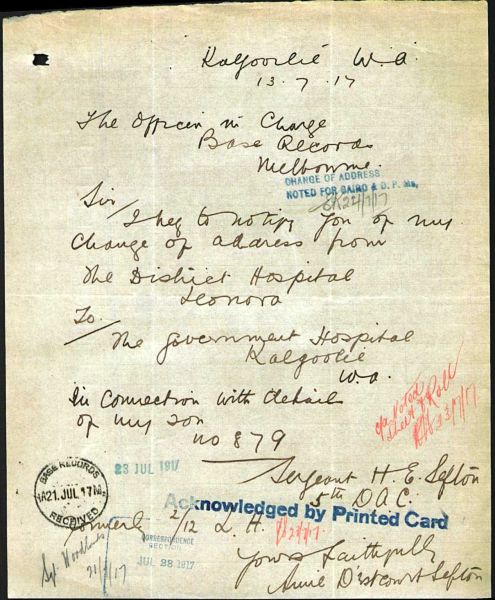 Kalgoorlie W.A.
13.7.17
The Officer in Charge
Base Records
Melbourne.
CHANGE OF ADDRESS
NOTED FOR CAIRO & D.P. Ms,
24/7/17
Sir/
I beg to notify you of my
change of address from
The District Hospital
Leonora
To.
The Government Hospital
Kalgoorlie
W.A.
In connection with details
of my son
no 879
Noted
Sheet & Roll
23/7/17
Sergeant H. E. Sefton
5th D.A.C.
23 JUL 1917
BASE RECORDS
21 JUL 17
RECEIVED
Acknowledged by Printed Card
formerly 2/12 L.H.
CORRESPONDENCE
SECTION
JUL 28 1917
Yours faithfully
Annie D'estcourt Sefton